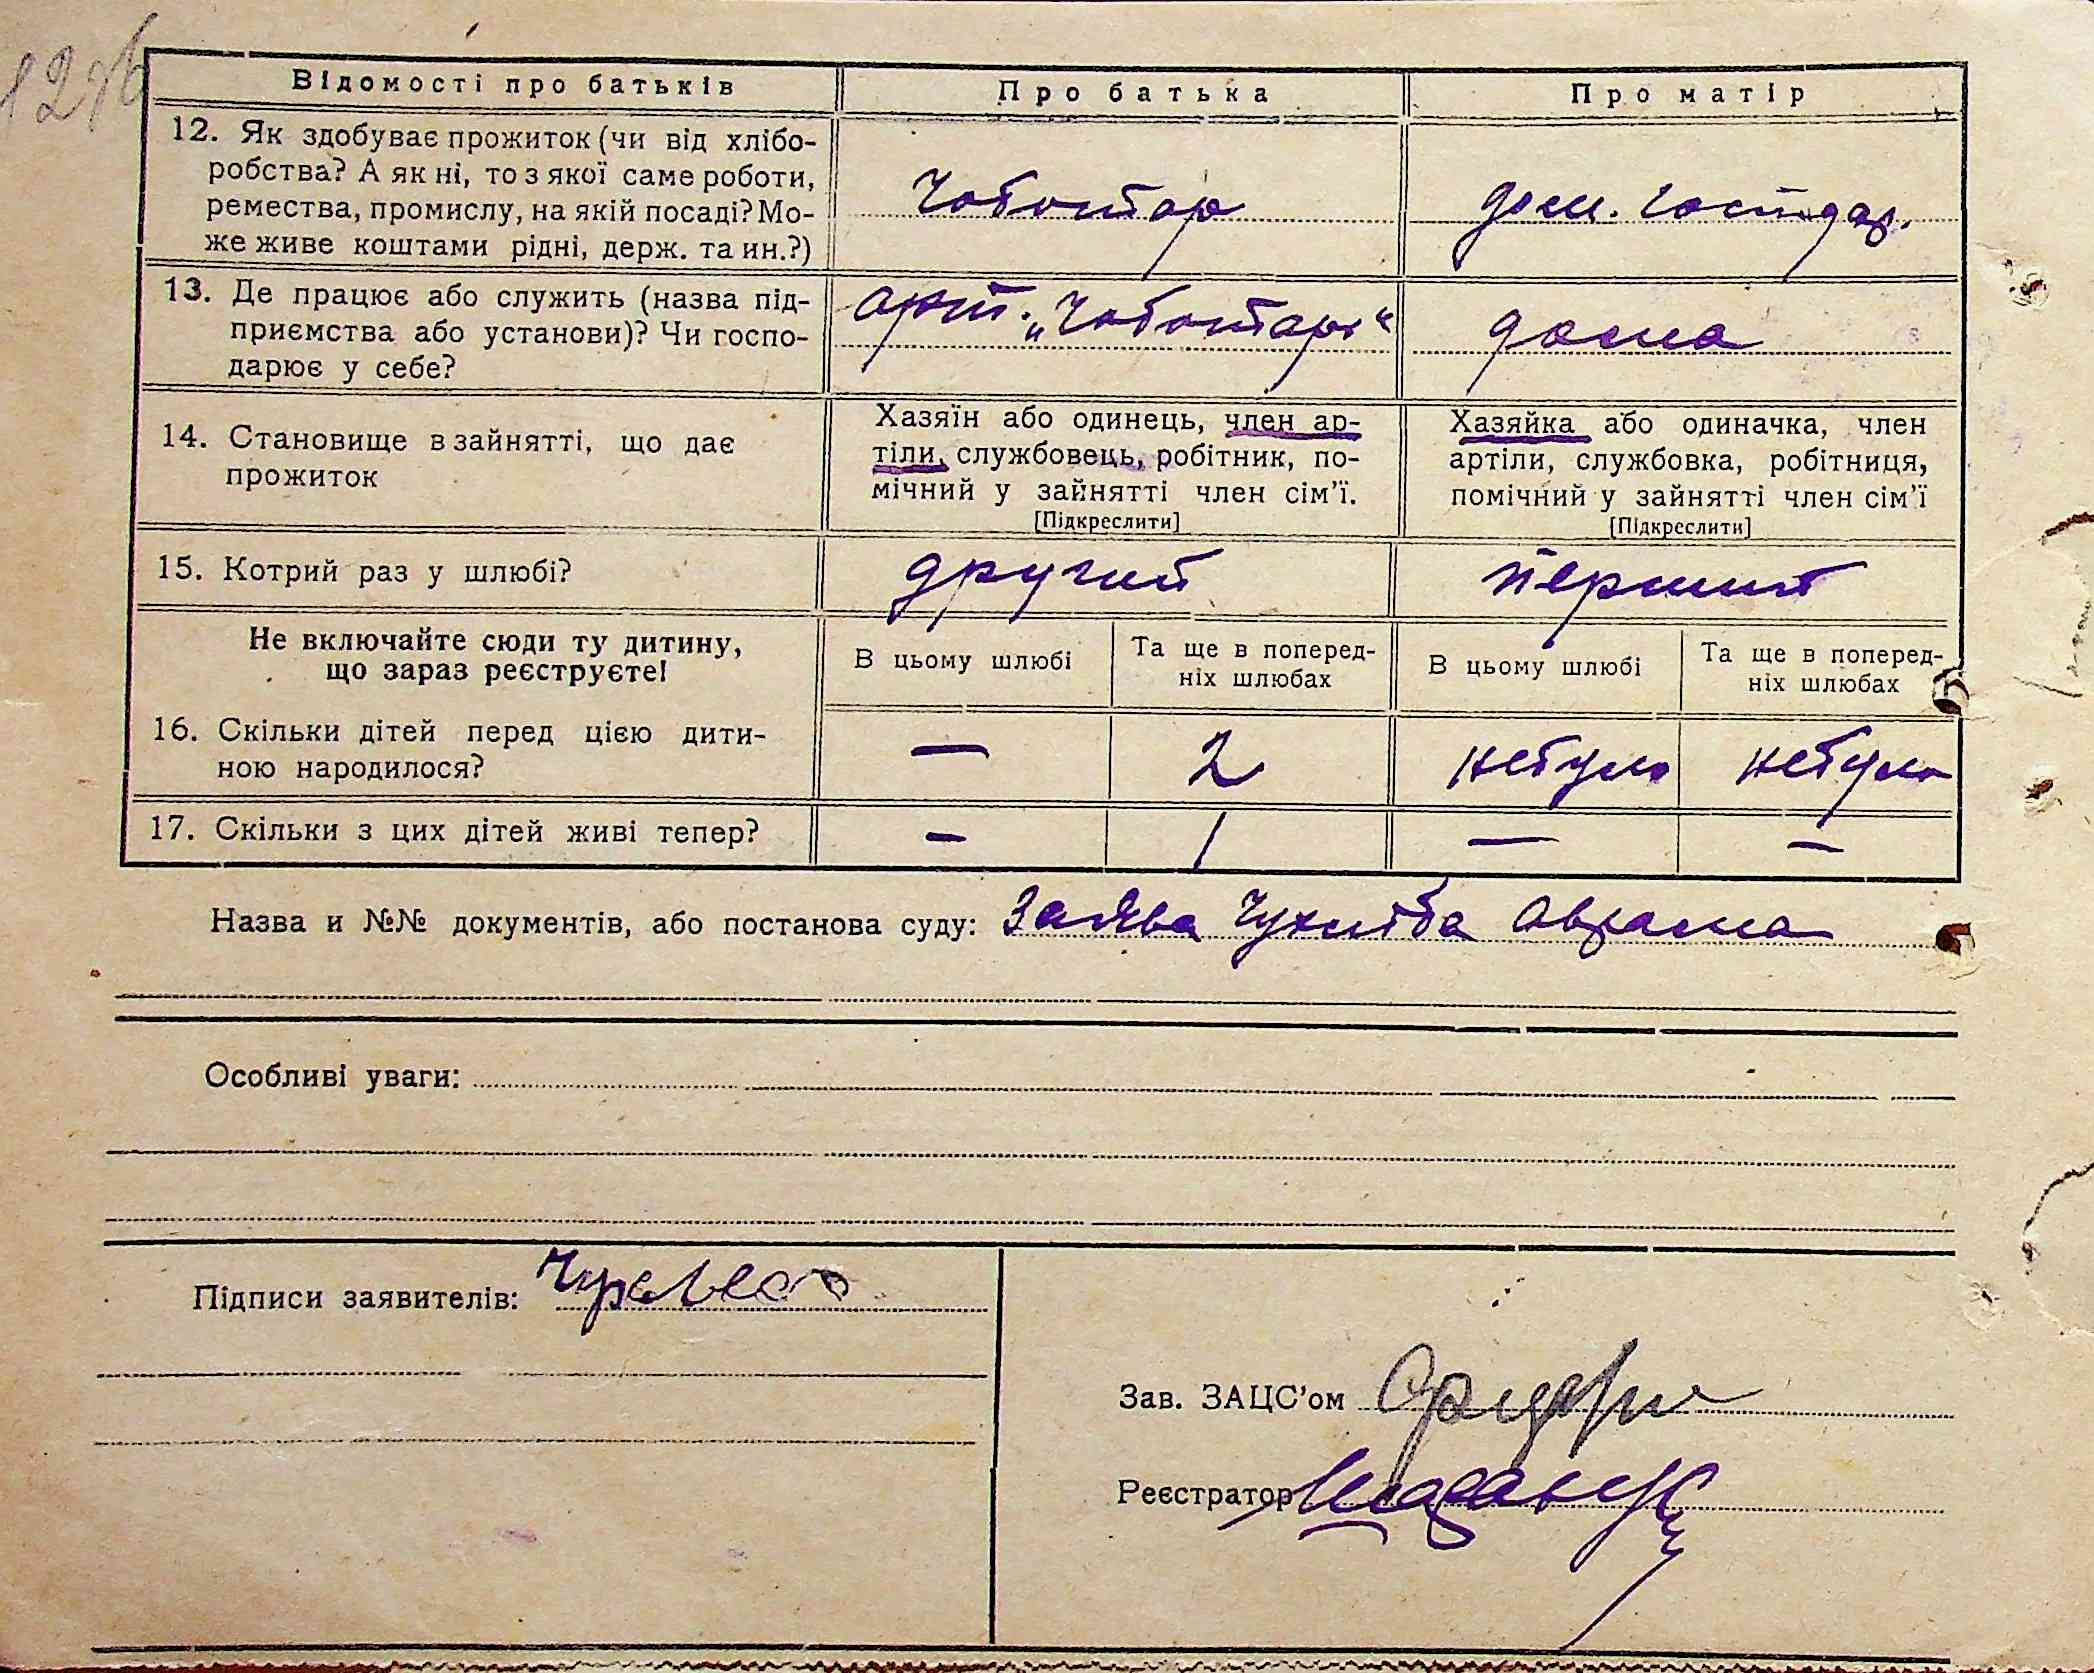 Відомості про батьків Про батька Про матір
12. Як здобуває прожиток (чи від хлібо-
робства? А як ні, то з якої саме роботи,
ремества, промислу, на якій посаді? Мо-
же живе коштами рідні, держ. та ин.?)
Чоботар дом. господар.
13. Де працює або служить (назва під-
приємства або установи)? Чи госпо-
дарює у себе?
арт. „Чоботарь“ дома
14. Становище в зайнятті, що дає
прожиток
Хазяїн або одинець, член ар-
тіли, службовець, робітник, по-
мічний у зайнятті член сім'ї.
[Підкреслити]
Хазяйка або одиначка, член
артіли, службовка, робітниця,
помічний у зайнятті член сім'ї
[Підкреслити]
15. Котрий раз у шлюбі? другий перший
Не включайте сюди ту дитину,
що зараз реєструєте!
В цьому шлюбі Та ще в поперед-
ніх шлюбах
В цьому шлюбі Та ще в поперед-
ніх шлюбах
16. Скільки дітей перед цією дити-
ною народилося?
— 2 небуло небуло
17. Скільки з цих дітей живі тепер? - 1 — —
Назва и №№ документів, або постанова суду: Заява Аврама
Особливі уваги:
Підписи заявителів:
Зав. ЗАЦС'ом
Реєстратор